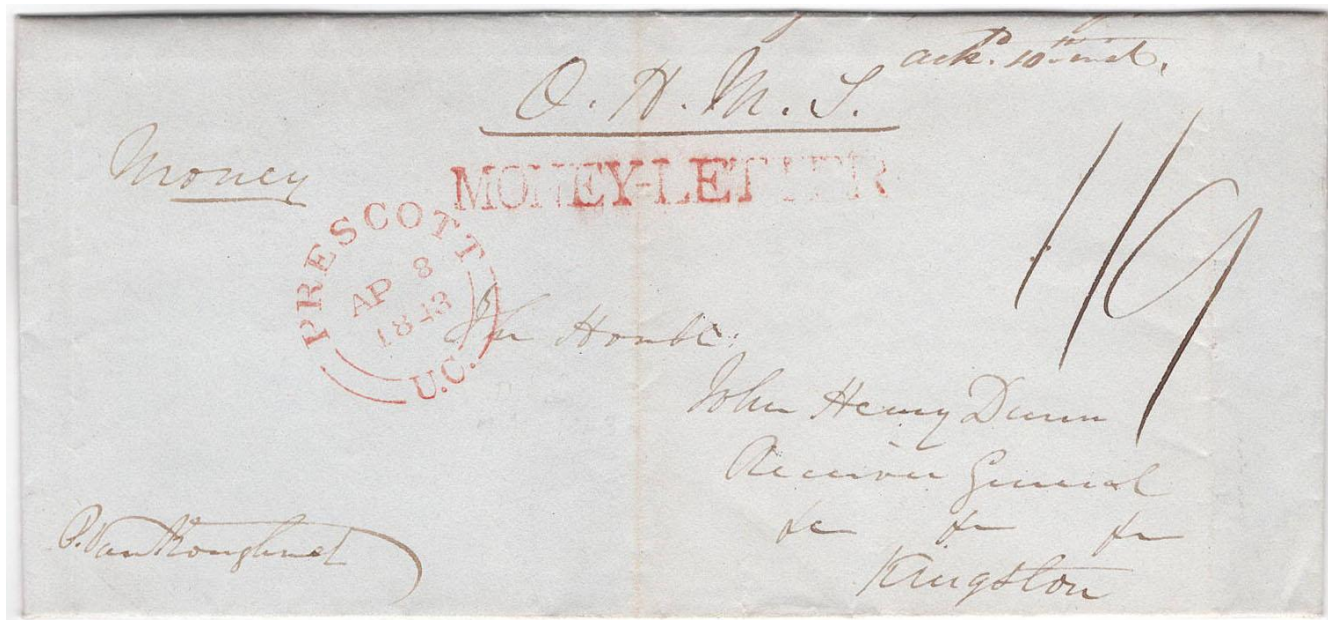 ackd. 10th inst.
O. H. M. S.
Money
MONEY-LETTER
1/9
PRESCOTT
AP 8
1843
U.C.
The Honble.
John Henry Dunn
Receiver General
&c &c &c
Kingston
P. VanKoughnet